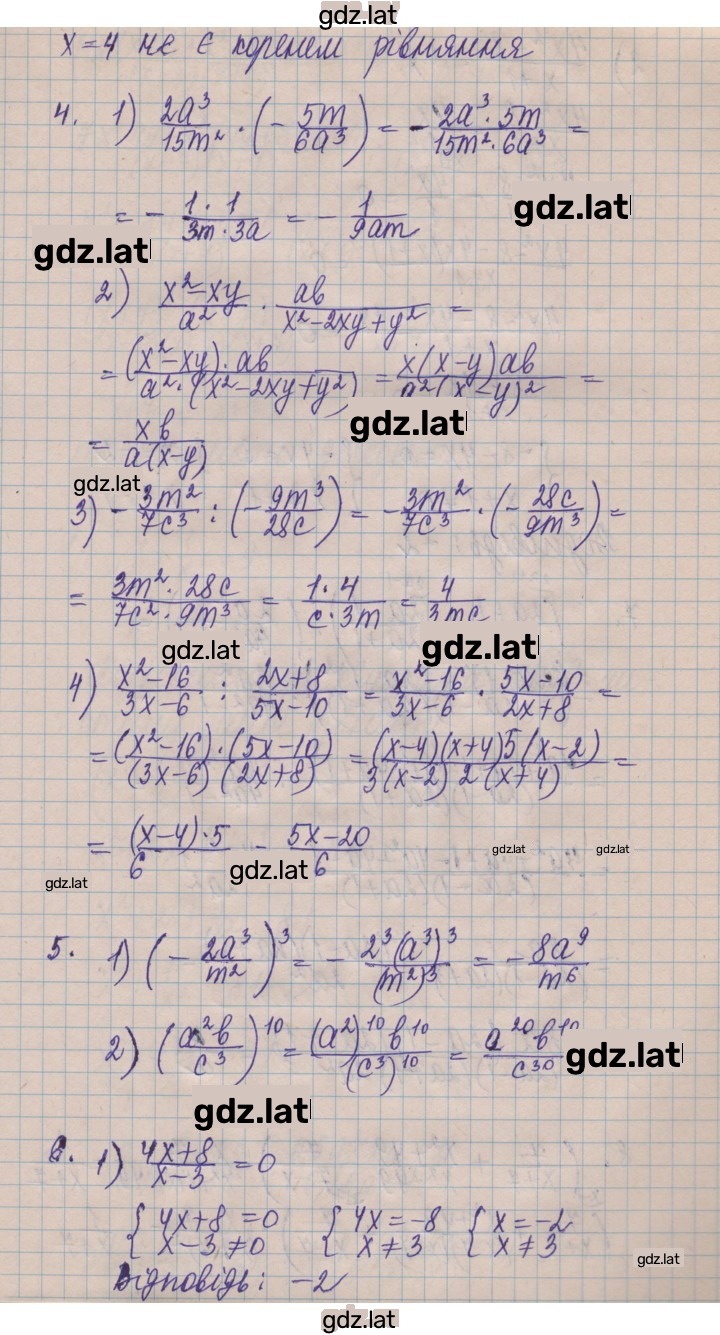 gdz.lat
x=4 не є коренем рівняння
4. 1) 2a³/15m² · (- 5m/6a³) = - 2a³·5m/15m²·6a³ =
= - 1·1/3m·3a = - 1/9am
gdz.lat
gdz.lat
2) x²-xy/a² · ab/x²-2xy+y² =
= (x²-xy)·ab/a²·(x²-2xy+y²) = x(x-y)ab/a²(x-y)² =
gdz.lat
= xb/a(x-y)
gdz.lat
3) - 3m²/7c³ : (- 9m³/28c) = - 3m²/7c³ · (- 28c/9m³) =
= 3m²·28c/7c²·9m³ = 1·4/c·3m = 4/3mc
gdz.lat
gdz.lat
4) x²-16/3x-6 : 2x+8/5x-10 = x²-16/3x-6 · 5x-10/2x+8 =
= (x²-16)·(5x-10)/(3x-6)(2x+8) = (x-4)(x+4)5(x-2)/3(x-2)2(x+4) =
= (x-4)·5/6 - 5x-20/6
gdz.lat
gdz.lat
gdz.lat
gdz.lat
5. 1) (- 2a³/m²)³ = - 2³(a³)³/(m²)³ = - 8a⁹/m⁶
2) (a²b/c³)¹⁰ = (a²)¹⁰b¹⁰/(c³)¹⁰ = a²⁰b¹⁰/c³⁰
gdz.lat
gdz.lat
6. 1) 4x+8/x-3 = 0
{ 4x+8=0 { 4x=-8 { x=-2
x-3≠0 x≠3 x≠3
gdz.lat
Відповідь: -2
gdz.lat